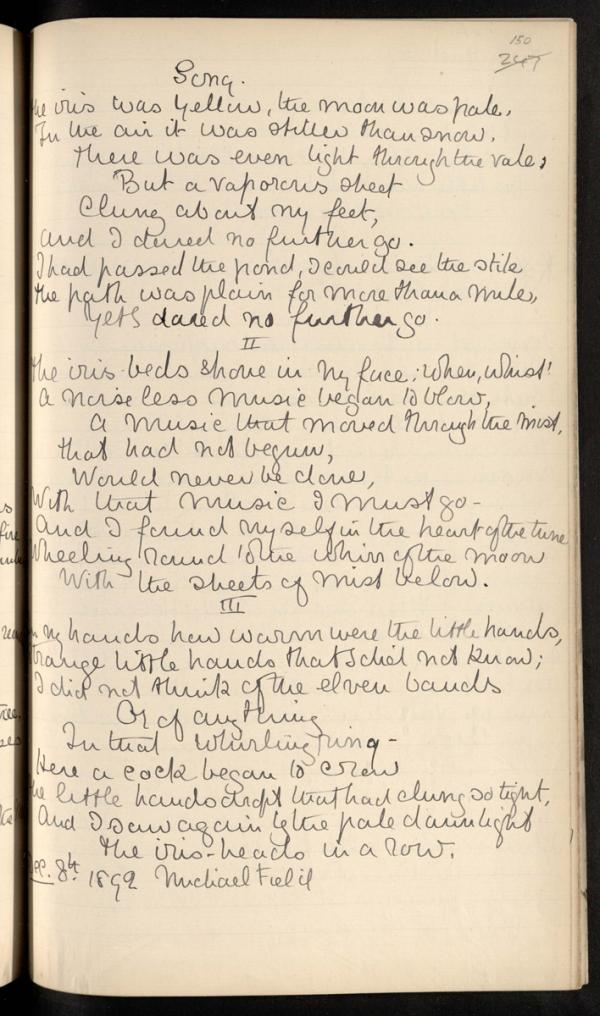 150
247
Song.
The iris was yellow, the moon was pale,
In the air it was stiller than snow,
There was even light through the vale,
But a vaporous sheet
Clung about my feet,
And I dared no further go.
I had passed the pond, I could see the stile
The path was plain for more than a mile,
Yet I dared no further go.
II
The iris-beds shone in my face; when, whist!
A noiseless music began to blow,
A music that moved through the mist,
That had not begun,
Would never be done,
With that music I must go –
And I found myself in the heart of the tune
Wheeling round to the whirr of the moon
With the sheets of mist below.
III
In my hands how warm were the little hands,
Strange little hands that I did not know;
I did not think of the elven bands
Or of anything
In that whirling ring –
Here a cock began to crow
The little hands dropt that had clung so tight,
And I saw again by the pale dawnlight
The iris-heads in a row.
Dec. 8th. 1892 Michael Field